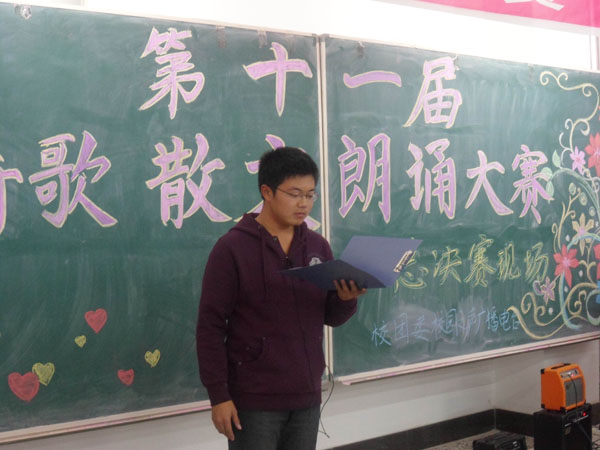 第十一届
歌散文朗诵大赛
总决赛现场
校团委 校园 广播电台